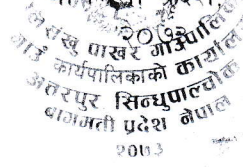 २०७३
शंखु पाखर गाउँपालिका
गाउँ कार्यपालिकाको कार्यालय
अत्तरपुर सिन्धुपाल्चोक
बागमती प्रदेश नेपाल
२०७३